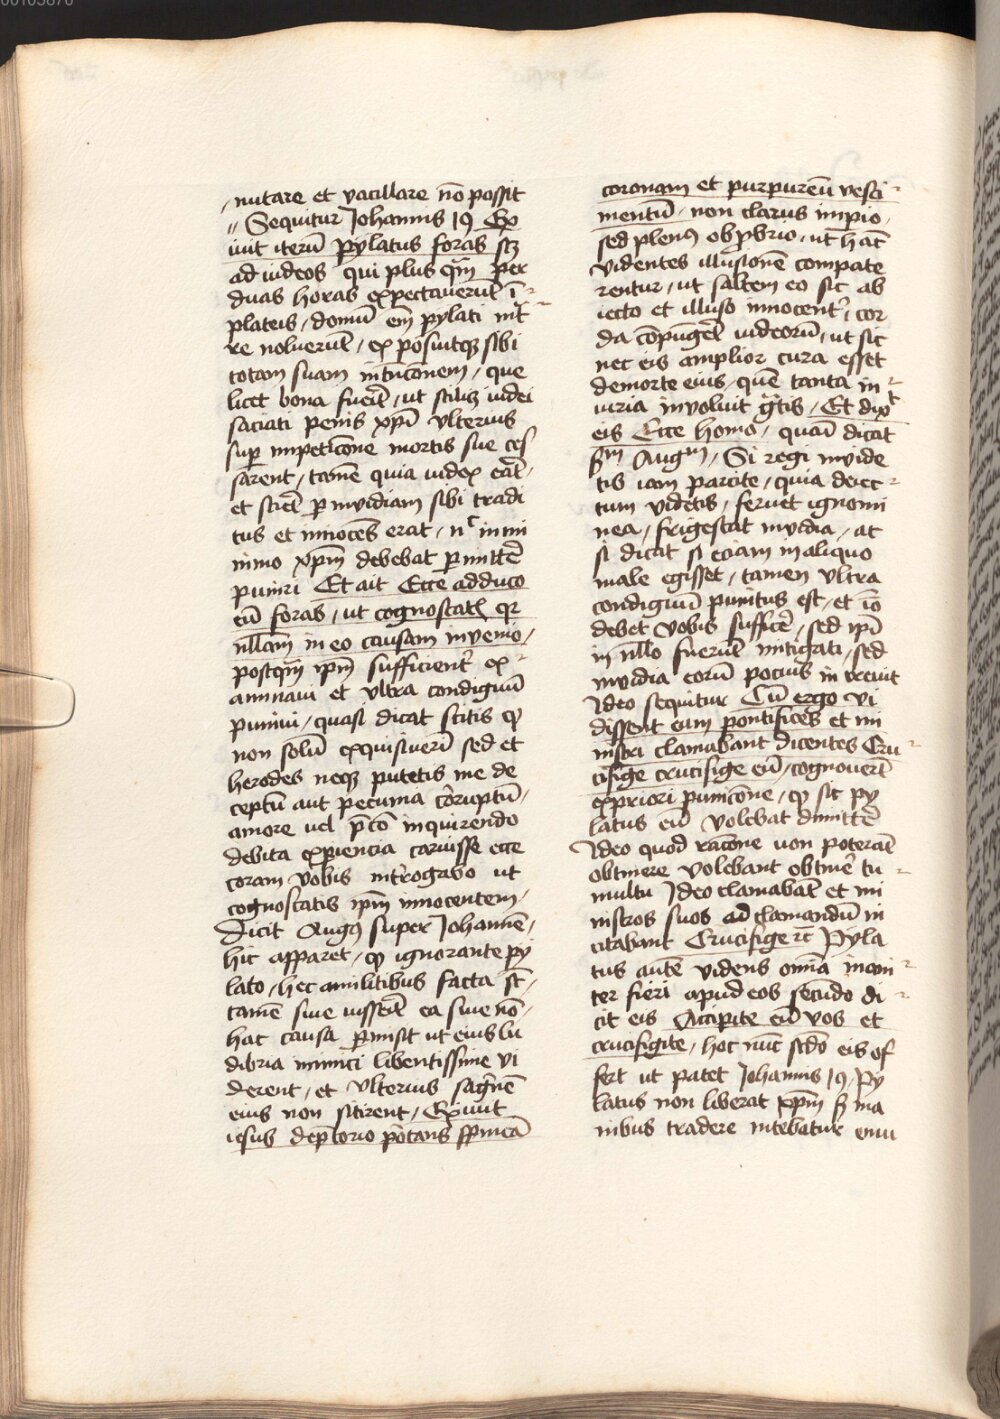 00103870
nutare et vacillare nō possit
Sequitur Johannis 19 Ex
iuit iterū pylatus foras sꝫ
ad iudeos qui plus qm̄ per
duas horas expectauerūt ī
plateis, domū em̄ pylati int
re noluerūt, ex posuitqꝫ sibi
totam suam intēcōnem, que
licet bona fuerit, ut scilicꝫ iudei
saciati penis xpī vlterius
sup impeticōne mortis sue ces
sarent, tamē quia iudex erāt,
et sciēt p̱ inuidiam sibi tradi
tus et innocēs erat, in mi
nimo xpm̄ debebat p̱mittē
puniri Et ait Ecce adduco
eū foras, ut cognoscatꝭ qꝛ
nllam in eo causam inuenio,
postqm̄ ipm̄ sufficient͛ ex
aminaui et vltra condignū
puniui, quasi dicat scitis ꝙ
non solū exquisiuerī sed et
herodes neqꝫ putetis me de
ceptū aut pecunia corruptū,
amore uel p̄co inquirendo
debita exp̱iencia caruisse ecce
coram vobis introgabo ut
cognoscatis ipm̄ innocentem,
Dicit Augꝰ super Johannē,
hic apparet, ꝙ ignorante py
lato, hec a militibus facta st̄,
tamē siue iusserāt ea siue nō,
hac causa p̱misit ut eius lu
dibria inimici libentissime vi
derent, et vlterius sagnē
eius non sitirent, Exiuit
iesus de p̄torio portans spineā
coronam et purpureū vesti
mentū, non clarus impio,
sed plenꝰ obp̱brio, ut hac̄
videntes illusionē compate
rentur, ut saltem eo sic ab
iecto et illuso innocent͛, cor
da cōpūgēt iudeorū, ut sic
nec eis amplior cura esset
de morte eius, quē tanta in
iuria inuoluit gͣtis, Et dixͭ
eis Ecce homo, quasi dicat
ẜm Augm̄, Si regi inuide
tis iam parcite, quia deiec
tum videtis, feruet ignomi
nea, frigescat inuidia, ac
si dicat si eciam in aliquo
male egisset, tamen vltra
condignū punitus est, et iō
debet vobis sufficē, sed ipī
in nllo fuerūt mitigati, sed
inuidia eorū pocius increuit
Ideo sequitur Cū ergo vi
dissent eum pontifices et mi
nistri clamabant dicentes Cru
cifige crucifige eū, cognouerūt
ex priori punicōne, ꝙ sic py
latus eū volebat dimittē
Ideo quod racōne non poterāt
obtinere volebant obtinē tu
multu Ideo clamabāt et mi
nistros suos ad clamandū in
citabant Crucifige ⁊c̄ Pyla
tus autē videns omīa inani
ter fieri apud eos secūdo di
cit eis Accipite eū vos et
crucifigite, hoc nūc scdo eis of
fert ut patet Johannis 19, Py
latus non liberat xpm̄ ß ma
nibus tradere nitebatur eniu